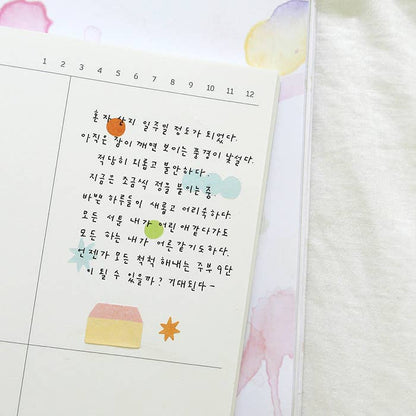 1 2 3 4 5 6 7 8 9 10 11 12
혼자 살리 일주일 정도가 되었다.
아직은 잠이 깨면 보이는 풍경이 낯설다.
적당히 외롭고 불안하다.
지금은 조금씩 정을 붙이는 중.
바쁜 하루들이 새롭고 어리숙하다.
모든 서툰 내가 어린 애같다가도
모든 하는 내가 어른 같기도하다.
언젠가 모든 척척 해내는 주부 9단
이 될 수 있을까? 기대된다~